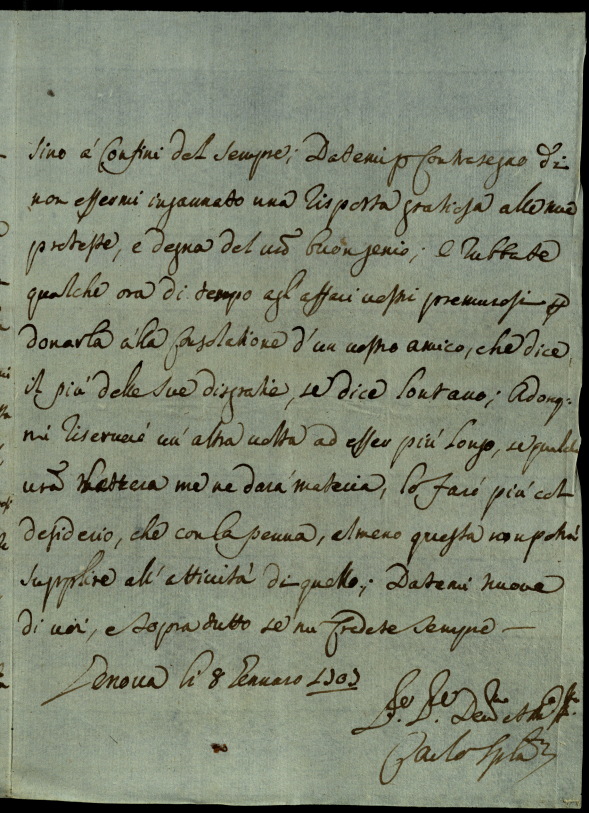 sino a' Confini del sempre; Datemi p Contrasegno di
non essermi ingannato una risposta gratiosa alle mie
proteste, e degna del vrō buon genio; e rubbate
qualche ora di tempo agl'affari vostri premurosi p
donarla alla Consolatione d'un vostro amico, che dice
il più delle sue disgratie, se dice lontano; Adonq:
mi riserverò un'altra volta ad esser più longo, se qualche
vrā lettera me ne darà materia, lo farò più col
desiderio, che con la penna, almeno questa non potrà
supplire all'attività di quello; Datemi nuove
di voi, e sopra tutto se mi Credete sempre —
Genova li 8 Gennaro 1703
Carlo